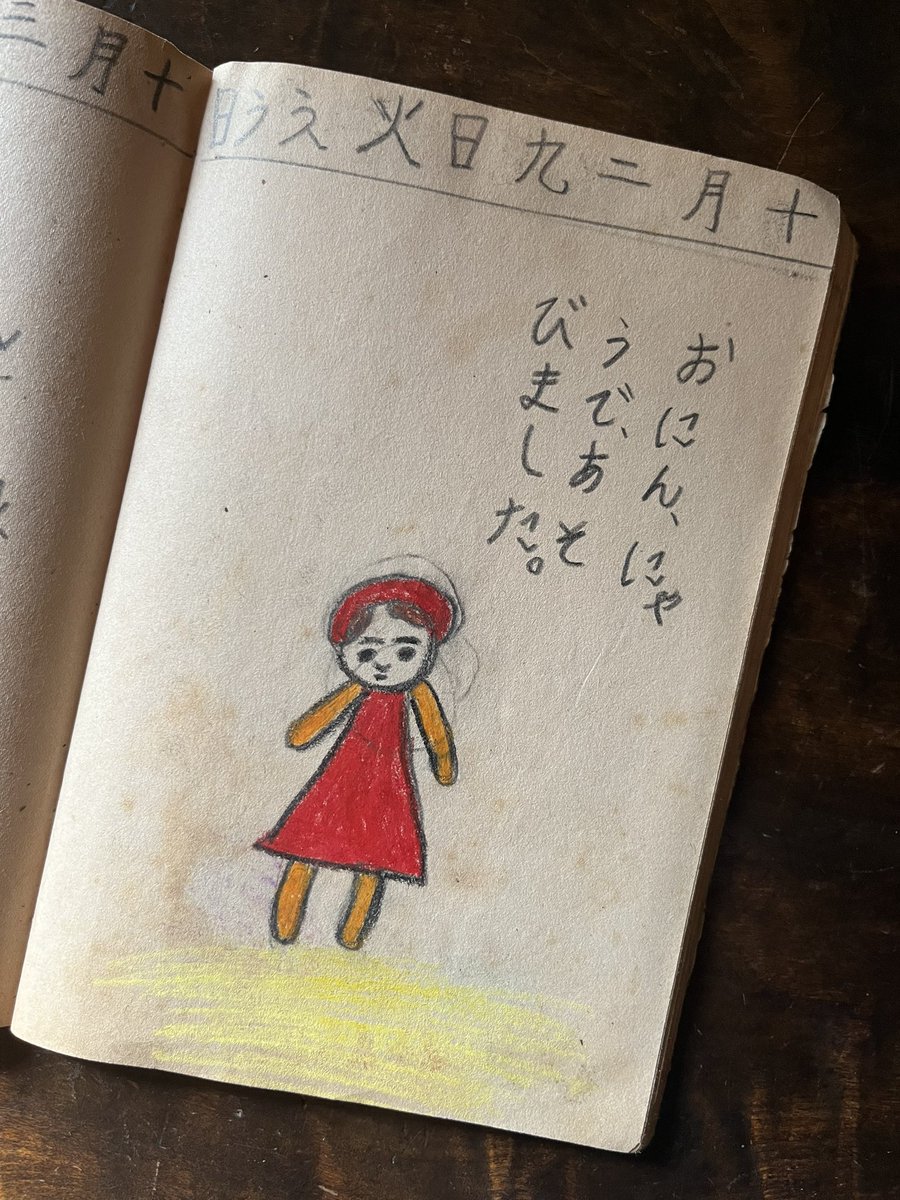 十月二九日火えう日
おにん、にや
うで、あそ
びました。
十月三